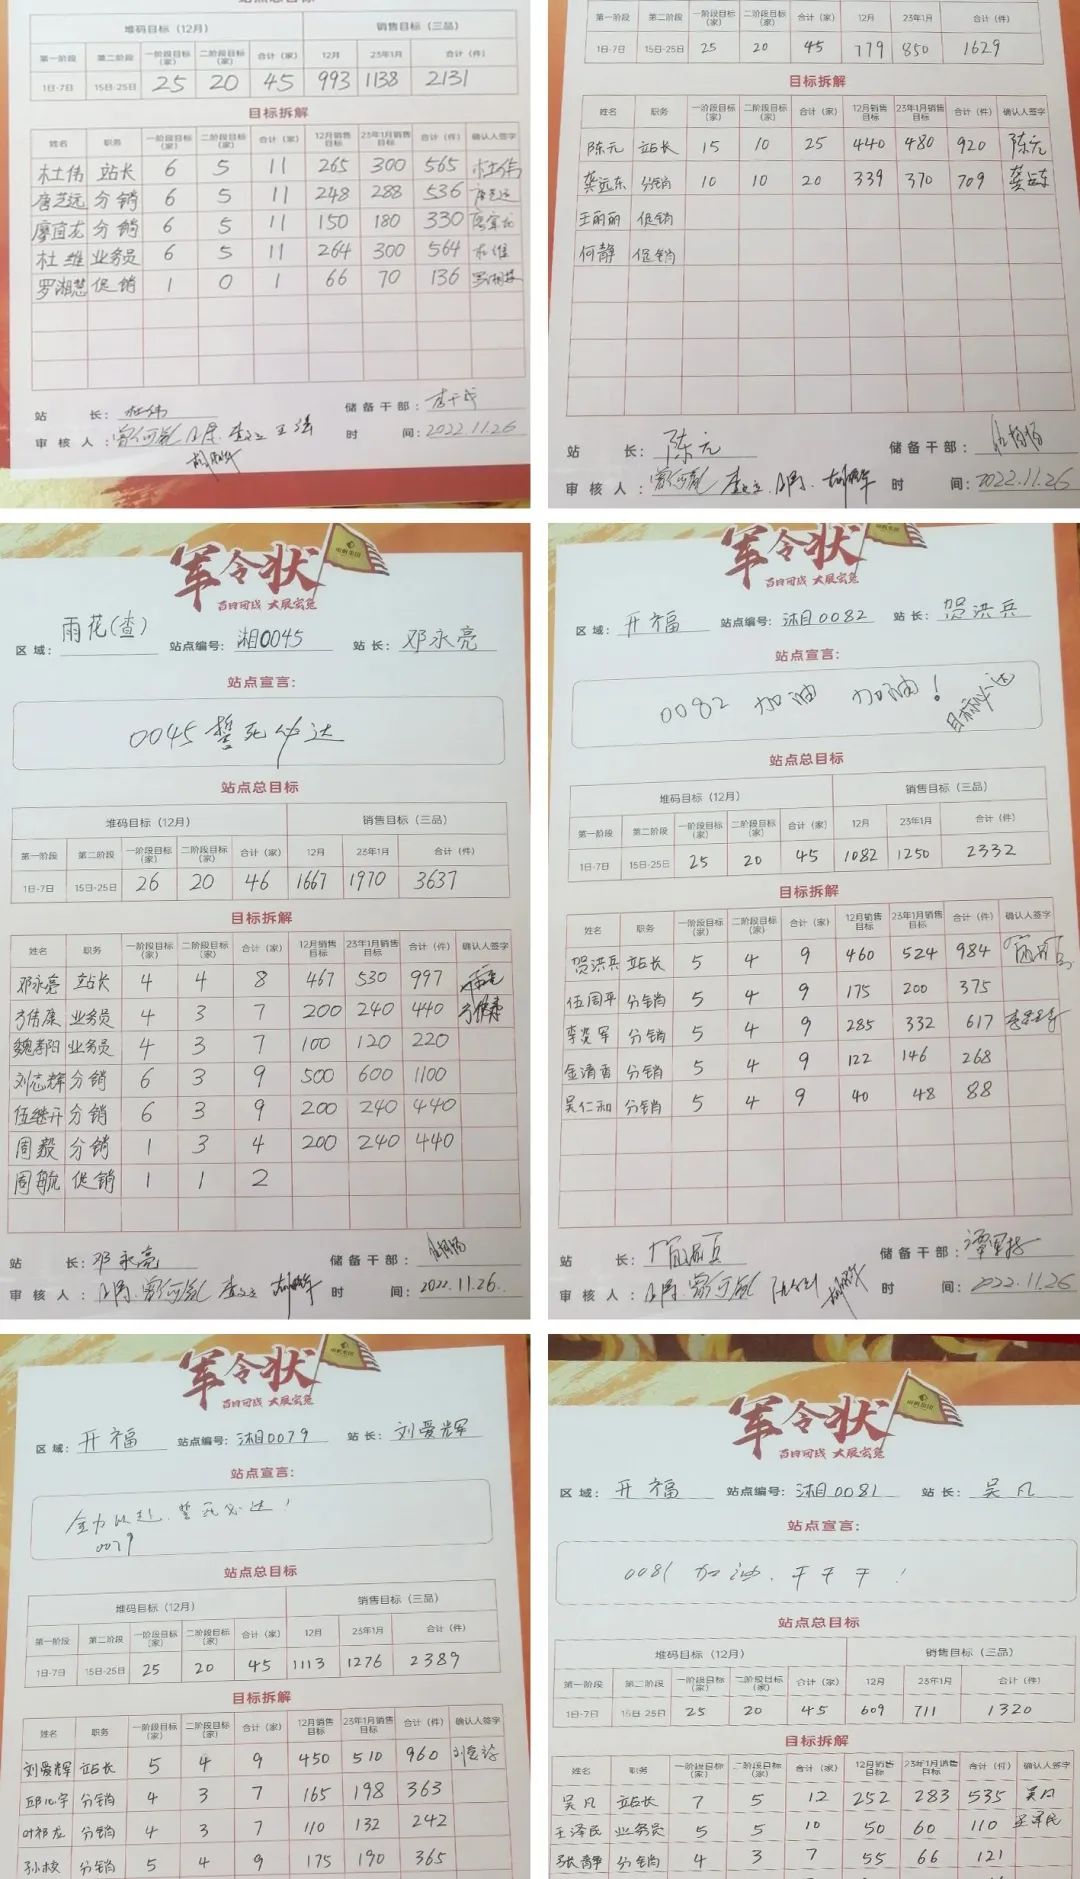 站点总目标
堆码目标（12月） 销售目标（三品）
第一阶段 第二阶段 一阶段目标（家） 二阶段目标（家） 合计（家） 12月 23年1月 合计（件）
1日-7日 15日-25日 25 20 45 993 1138 2131
目标拆解
姓名 职务 一阶段目标（家） 二阶段目标（家） 合计（家） 12月销售目标 23年1月销售目标 合计（件） 确认人签字
杜伟 站长 6 5 11 265 300 565 杜伟
唐芝远 分销 6 5 11 248 288 536 唐芝远
廖宜龙 分销 6 5 11 150 180 330
杜维 业务员 6 5 11 264 300 564 杜维
罗湘慧 促销 1 0 1 66 70 136
站长：杜伟 储备干部：
审核人： 时间：2022.11.26
第一阶段 第二阶段 一阶段目标（家） 二阶段目标（家） 合计（家） 12月 23年1月 合计（件）
1日-7日 15日-25日 25 20 45 779 850 1629
目标拆解
姓名 职务 一阶段目标（家） 二阶段目标（家） 合计（家） 12月销售目标 23年1月销售目标 合计（件） 确认人签字
陈元 站长 15 10 25 440 480 920 陈元
龚远东 分销 10 10 20 339 370 709 龚远东
王丽丽 促销
何静 促销
站长：陈元 储备干部：
审核人： 时间：2022.11.26
军令状
百日可战 大展宏兔
区域：雨花(查) 站点编号：湘0045 站长：邓永亮
站点宣言：
0045誓死必达
站点总目标
堆码目标（12月） 销售目标（三品）
第一阶段 第二阶段 一阶段目标（家） 二阶段目标（家） 合计（家） 12月 23年1月 合计（件）
1日-7日 15日-25日 26 20 46 1667 1970 3637
目标拆解
姓名 职务 一阶段目标（家） 二阶段目标（家） 合计（家） 12月销售目标 23年1月销售目标 合计（件） 确认人签字
邓永亮 站长 4 4 8 467 530 997
业务员 4 3 7 200 240 440
魏孝阳 业务员 4 3 7 100 120 220
刘志辉 分销 6 3 9 500 600 1100
伍继开 分销 6 3 9 200 240 440
周毅 分销 1 3 4 200 240 440
周航 促销 1 1 2
站长：邓永亮 储备干部：
审核人： 时间：2022.11.26.
军令状
百日可战 大展宏兔
区域：开福 站点编号：湘0082 站长：贺洪兵
站点宣言：
0082 加油 加油！目标必达
站点总目标
堆码目标（12月） 销售目标（三品）
第一阶段 第二阶段 一阶段目标（家） 二阶段目标（家） 合计（家） 12月 23年1月 合计（件）
1日-7日 15日-25日 25 20 45 1082 1250 2332
目标拆解
姓名 职务 一阶段目标（家） 二阶段目标（家） 合计（家） 12月销售目标 23年1月销售目标 合计（件） 确认人签字
贺洪兵 站长 5 4 9 460 524 984
伍周平 分销 5 4 9 175 200 375
分销 5 4 9 285 332 617
金清香 分销 5 4 9 122 146 268
吴仁和 分销 5 4 9 40 48 88
站长： 储备干部：
审核人： 时间：2022.11.26
军令状
百日可战 大展宏兔
区域：开福 站点编号：湘0079 站长：刘爱辉
站点宣言：
全力以赴，誓死必达！
0079
站点总目标
堆码目标（12月） 销售目标（三品）
第一阶段 第二阶段 一阶段目标（家） 二阶段目标（家） 合计（家） 12月 23年1月 合计（件）
1日-7日 15日-25日 25 20 45 1113 1276 2389
目标拆解
姓名 职务 一阶段目标（家） 二阶段目标（家） 合计（家） 12月销售目标 23年1月销售目标 合计（件） 确认人签字
刘爱辉 站长 5 4 9 450 510 960
分销 4 3 7 165 198 363
叶裙龙 分销 4 3 7 110 132 242
孙校 分销 5 4 9 175 190 365
军令状
百日可战 大展宏兔
区域：开福 站点编号：湘0081 站长：吴凡
站点宣言：
0081 加油，干干干！
站点总目标
堆码目标（12月） 销售目标（三品）
第一阶段 第二阶段 一阶段目标（家） 二阶段目标（家） 合计（家） 12月 23年1月 合计（件）
1日-7日 15日-25日 25 20 45 609 711 1320
目标拆解
姓名 职务 一阶段目标（家） 二阶段目标（家） 合计（家） 12月销售目标 23年1月销售目标 合计（件） 确认人签字
吴凡 站长 7 5 12 252 283 535 吴凡
王泽民 业务员 5 5 10 50 60 110 王泽民
张静 分销 4 3 7 55 66 121